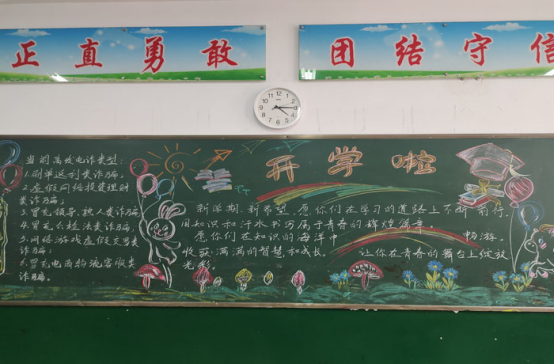 正直勇敢
团结守信
开学啦
当前高发电诈类型:
1.刷单返利类诈骗。
2.虚假网络投资理财
类诈骗;
3.冒充领导、熟人类诈骗
4.冒充公检法类诈骗。
5.网络游戏虚假交易类
诈骗;
6.冒充电商物流客服类
诈骗。
新学期,新希望,愿你们在学习的道路上不断前行,
用知识和汗水书写属于青春的辉煌
愿你们在知识的海洋中 畅游。
收获满满的智慧和成长。 让你在青春的舞台上绽放
光彩